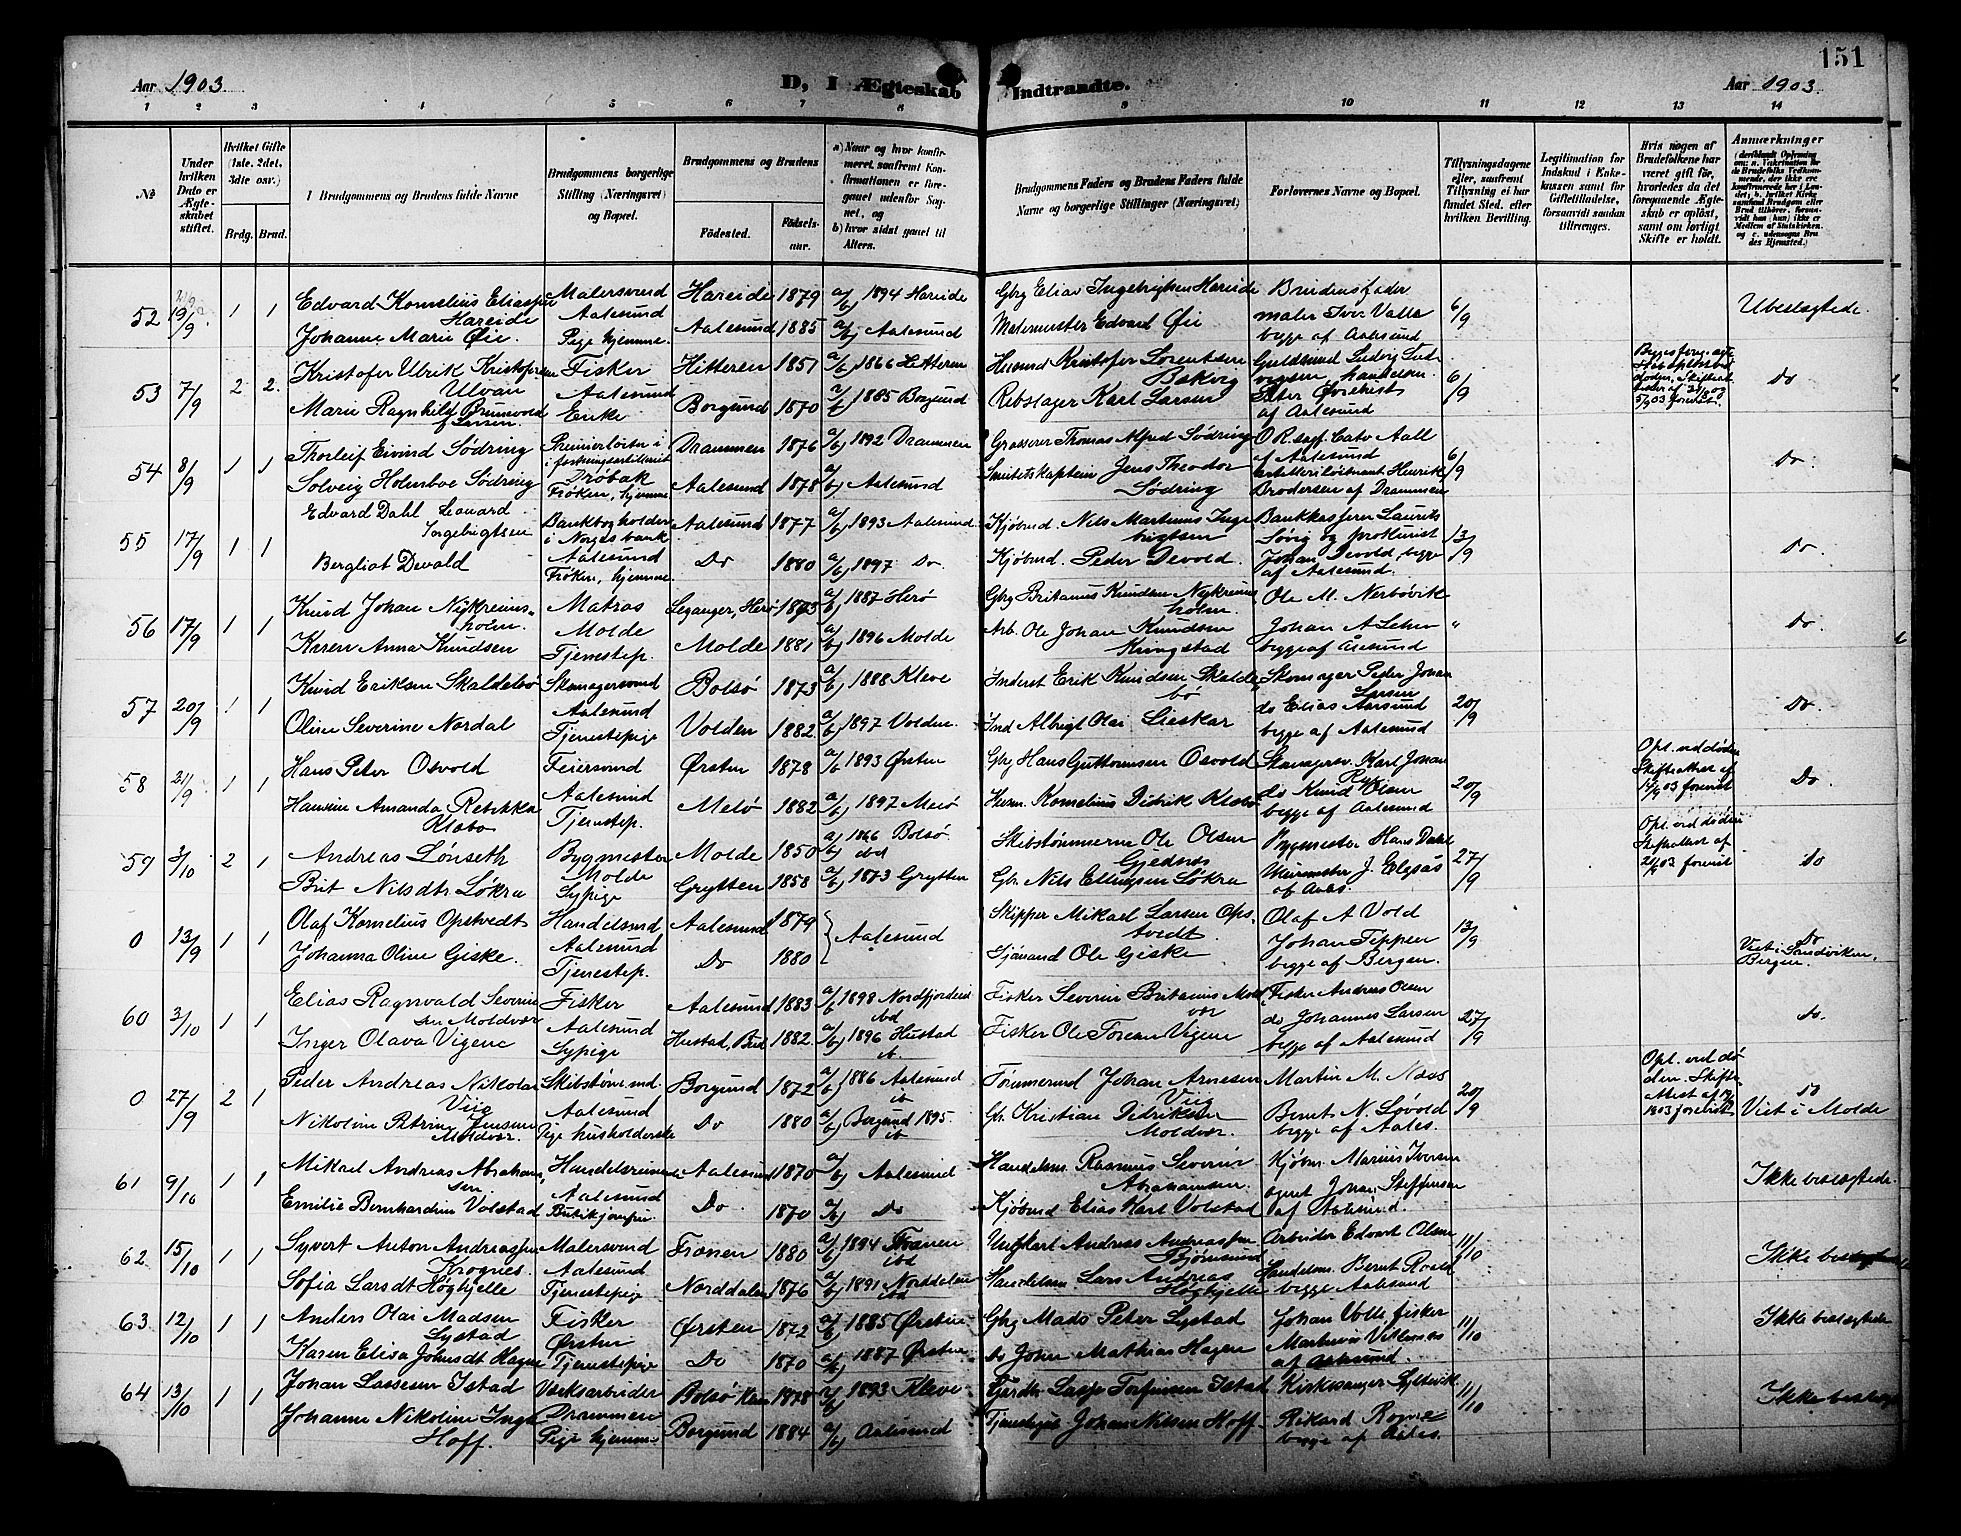 151
Aar 1903.
D, I Ægteskab Indtraadte.
Aar 1903.
1 2 3 4 5 6 7 8 9 10 11 12 13 14
№
Under hvilken Dato er Ægteskabet stiftet.
Hvilket Gifte (1ste, 2det, 3die osv.)
Brdg. Brud.
Brudgommens og Brudens fulde Navne
Brudgommens borgerlige Stilling (Næringsvei) og Bopæl.
Brudgommens og Brudens
Fødested.
Fødselsaar.
a) Naar og hvor konfirmeret, saafremt Konfirmationen er foregaaet udenfor Sognet, og
b) hvor sidst gaaet til Alters.
Brudgommens Faders og Brudens Faders fulde Navne og borgerlige Stillinger (Næringsvei)
Forlovernes Navne og Bopæl.
Tillysningsdagene eller, saafremt Tillysning ei har fundet Sted, efter hvilken Bevilling.
Legitimation for Indskud i Enkekassen samt for Giftetilladelse, forsaavidt saadan tiltrænges.
Hvis nogen af Brudefolkene har været gift før, hvorledes da det foregaaende Ægteskab er opløst, samt om lovligt Skifte er holdt.
Anmærkninger
52 19/9 1 1 Edvard Kornelius Eliassen Hareide Malersvend Aalesund Hareide 1879 a/b 1894 Hareide Gbrg Elias Ingebrigtsen Hareide Brudens fader 6/9 Ubeslægtede.
Johanne Marie Øie. Pige hjemme. Aalesund 1885 a/b Aalesund Malermester Edvard Øie maler Iver Valle begge af Aalesund
53 7/9 2 2. Kristofer Ulrik Kristofersen Ulvan Fisker Aalesund Hitteren 1851 a/b 1866 Hitteren Husmd Kristofer Lorentsen 6/9 Do
Marie Ragnhild Brunvold f. Larsen. Enke Borgund 1870 a/b 1885 Borgund Rebslager Karl Larsen af Aalesund
54 8/9 1 1 Thorleif Eivind Södring Premierløitn i Drøbak Drammen 1876 a/b 1892 Drammen Grosserer Thomas Alfred Södring O.R.sagf. Cato Aall af Aalesund 6/9 Do.
Solveig Holmboe Södring Frøken, hjemme Aalesund 1878 a/b Aalesund Jens Theodor Södring artilleriløitnant Henrik Brodersen af Drammen
55 17/9 1 1 Edvard Dahl Leonard Ingebrigtsen Bankbogholder i Norges bank Aalesund Aalesund 1877 a/b 1893 Aalesund Kjøbmd. Nils Martinus Ingebrigtsen Bankkasserer Laurits 13/9 Do.
Bergliot Devold Frøken, hjemme. Do 1880 a/b 1897 Do. Kjøbmd. Peder Devold. og prokurist Johan Devold, begge af Aalesund.
56 17/9 1 1 Knud Johan Nykreimsholm. Matros Molde Leganger, Herø 1873 a/b 1887 Herø Gbrg Britanus Knudsen Nykreimsholm. Ole M. Nerbøvik " Do.
Karen Anna Knudsen Tjenestep. Molde 1881 a/b 1896 Molde Arb. Ole Johan Knudsen Kringstad Johan A begge af Aalesund
57 20/9 1 1 Knud Eriksen Skaldebø Skomagersvend Aalesund Bolsø 1873 a/b 1888 Kleve Inderst Erik Knudsen Skaldebø Skomager Peder Johan Larsen 20/9 Do.
Oline Severine Nordal Tjenestepige Volden 1882. a/b 1897 Volden. Ind Albrigt Olai Lieskar do Elias Aarsund begge af Aalesund
58 21/9 1 1 Hans Peter Osvold Feiersvend Aalesund Ørsten 1878 a/b 1893 Ørsten Gbrg Hans Guttormsen Osvold Skomagersv. Karl Johan 20/9 Opl. ved døden Skifteattest af 14/9 03 forevist Do
Hansine Amanda Rebekka Klæbo Tjenestep. Melø 1882 a/b 1897 Melø Husm. Kornelius Didrik Klæbo do Knud Olsen begge af Aalesund
59 3/10 2 1 Andreas Lønseth Bygmester Molde Molde 1850 a/b 1866 Bolsø ibd Skibstømmerm Ole Olsen Gjednes Bygmester Hans Dahl 27/9 Opl. ved døden Skifteattest af 21/9 03 forevist do
Brit Nilsdtr Løkra Sypige Grytten 1858 a/b 1873 Grytten Gbr. Nils Ellingsen Løkra Murmester J. Elgsås af Aales.
0 13/9 1 1 Olaf Kornelius Opstvedt Handelsmd Aalesund Aalesund 1879 Aalesund Skipper Mikael Larsen Opstvedt. Olaf A Vold 13/9 Do Viet i Sandviken, Bergen.
Johanna Oline Giske. Tjenestep. Do 1880 Sjömand Ole Giske Johan Tippen begge af Bergen.
60 3/10 1 1 Elias Ragnvald Severinsen Moldvær Fisker Aalesund Aalesund 1883 a/b 1898 Nordfjordeid ibd Fisker Severin Britanus Moldvær Fisker Andreas Olsen 27/9 do.
Inger Olava Vigene Sypige Hustad, Bud 1882. a/b 1896 Hustad ib. Fisker Ole Toresen Vigene do Johannes Larsen begge af Aalesund
0 27/9 2 1 Peder Andreas Nikolai Viig Skibstøm.md. Aalesund Borgund 1872 a/b 1886 Aalesund ib Tømmermd Johan Arnesen Viig Martin M. Næss 20/9 Opl. ved døden. Skifteattest af 1903 forevist do Viet i Molde
Nikoline Petrine Jensine Moldvær. Pige husholderske Do 1880 a/b Borgund 1895. ib Gb. Kristian Didriksen Moldvær. Bernt N. Løvold begge af Aales.
61 9/10 1 1 Mikael Andreas Abrahamsen. Handelsreisende Aalesund Aalesund 1870 a/b Aalesund Handelsm. Rasmus Severin Abrahamsen. Kjøbm. Marius Iversen Ikke beslægtede.
Emilie Bernhardine Volstad Butikjomfru. Do. 1870 a/b Do Kjøbmd Elias Karl Volstad agent Johan Steffensen af Aalesund.
62 15/10 1 1 Syvert Anton Andreassen Krognes. Malersvend Aalesund Frænen 1880 a/b 1894 Frænen ibd Andreas Andreassen Bjørnsund Arbeider Edvart Olsen 11/10 Ikke beslægtede
Sofia Larsdt Høghjelle Tjenestepige Norddalen 1876 a/b 1891 Norddalen ibd Handelsm. Lars Andreas Høghjelle Handelsm. Bernt Roald begge Aalesund
63 12/10 1 1 Anders Olai Madsen Systad Fisker Ørsten Ørsten 1872 a/b 1885 Ørsten Gbrg Mads Peter Systad Johan Volle fisker 11/10 Ikke beslægtede
Karen Elisa Johnsdt Hagen Tjenestepige Do 1870 a/b 1887 Ørsten Do John Mathias Hagen af Aalesund.
64 13/10 1 1 Johan Lassesen Istad Værksarbeider Drammen Bolsø 1878 a/b 1893 Kleve Gjørdtr Lasse Torfinnsen Istad Kirkesanger 11/10 Ikke beslægt
Johanne Nikoline Inga Hoff. Pige hjemme Borgund 1884 a/b Aalesund Johan Nilsen Hoff Rikard Rogne begge af Aales.